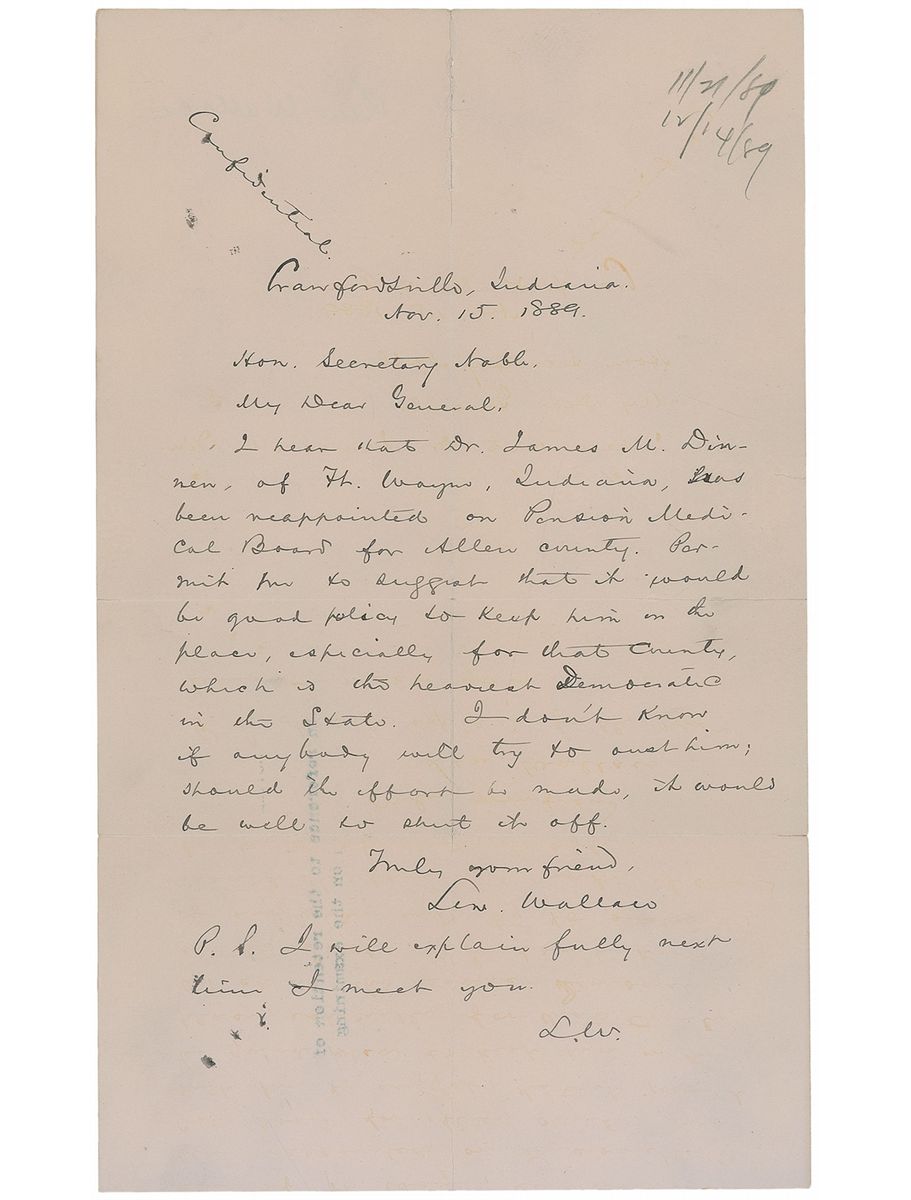 11/21/89
12/14/89
Confidential.
Crawfordsville, Indiana.
Nov. 15. 1889.
Hon. Secretary Noble.
My Dear General.
I hear that Dr. James M. Din-
nen, of Ft. Wayne, Indiana, has
been reappointed on Pension Medi-
cal Board for Allen county. Per-
mit me to suggest that it would
be good policy to keep him in the
place, especially for that County,
which is the heaviest Democratic
in the State. I don't know
if anybody will try to oust him;
should the effort be made, it would
be well to shut it off.
Truly your friend,
Lew. Wallace
P. S. I will explain fully next
time I meet you.
L.W.
on the examining
in reference to the retention of